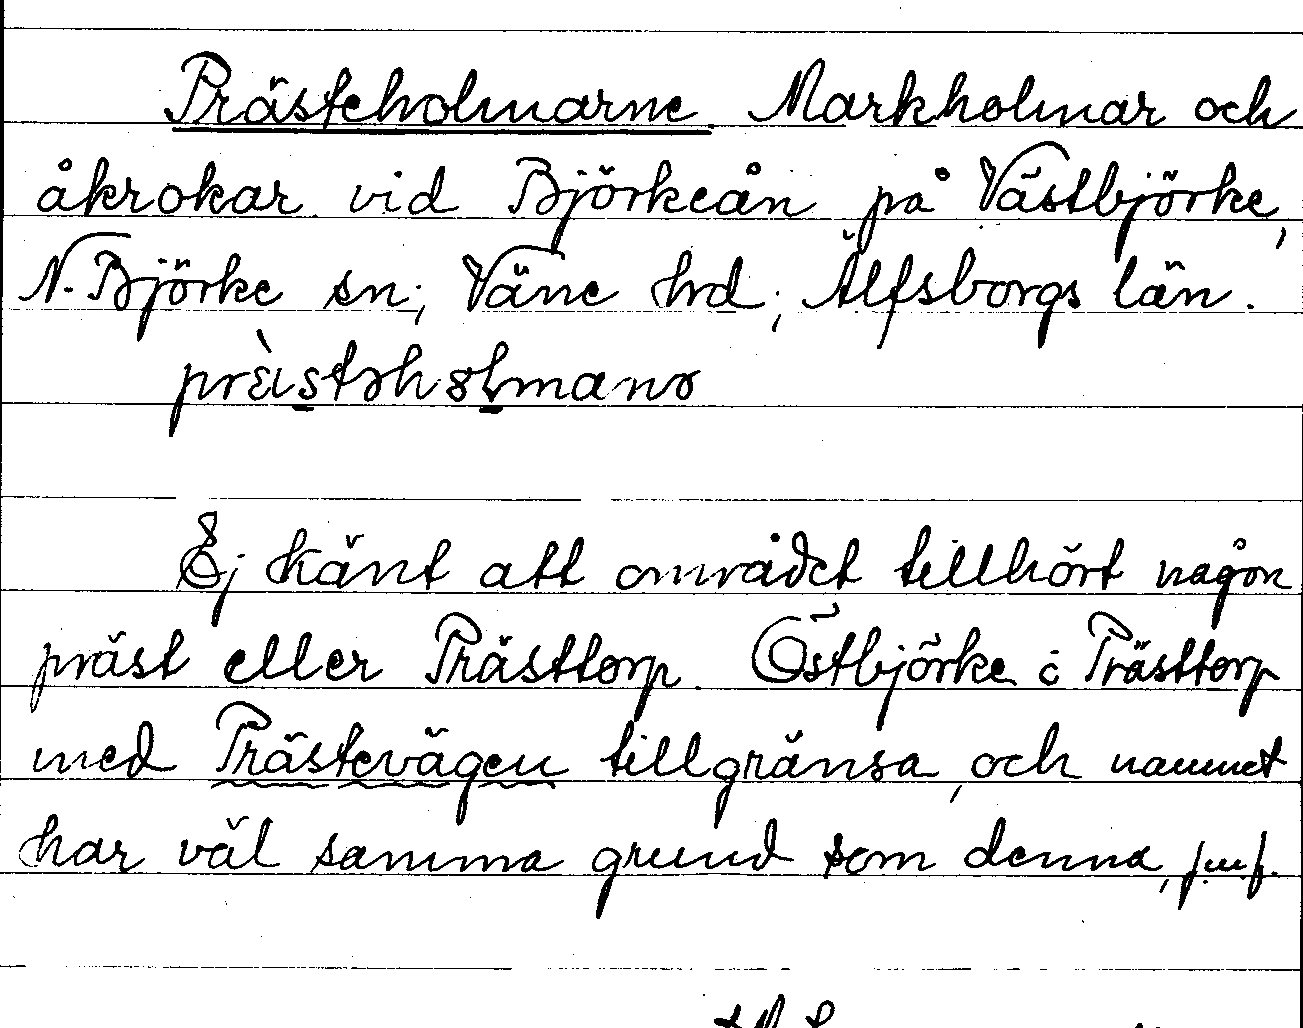 Prästeholmarne. Markholmar och
åkrokar vid Björkeån på Västbjörke,
N. Björke sn; Väne hrd; Älfsborgs län.
prèistəhɷlmanə
Ej känt att området tillhört någon
präst eller Prästtorp. Östbjörke i Prästtorp
med Prästevägen tillgränsa, och namnet
har väl samma grund som denna, jmf.